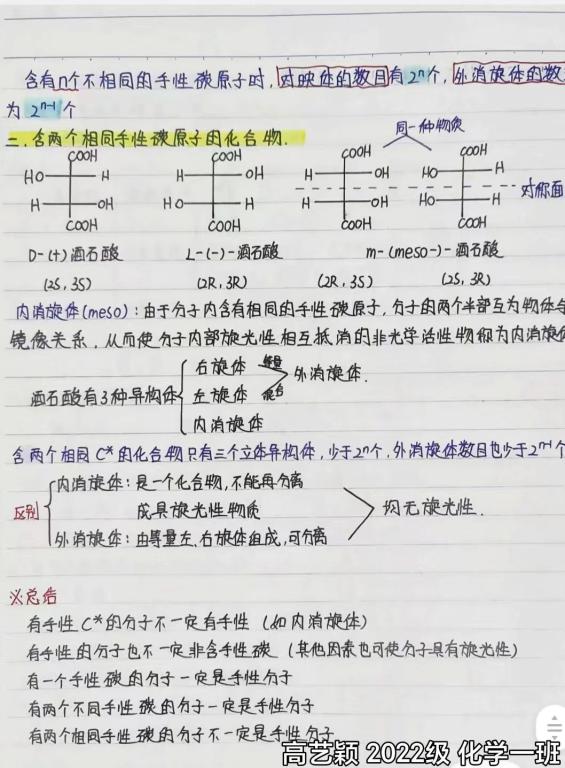 含有n个不相同的手性碳原子时，对映体的数目有2ⁿ个，外消旋体的数
为2ⁿ⁻¹个
三.含两个相同手性碳原子的化合物.
同一种物质
COOH COOH COOH COOH
HO H H OH H OH HO H
对称面
H OH HO H H OH HO H
COOH COOH COOH COOH
D-(+)酒石酸 L-(-)-酒石酸 m-(meso-)-酒石酸
(2S,3S) (2R,3R) (2R,3S) (2S,3R)
内消旋体(meso)：由于分子内含有相同的手性碳原子，分子的两个半部互为物体与
镜像关系，从而使分子内部旋光性相互抵消的非光学活性物称为内消旋体
酒石酸有3种异构体
右旋体 等量
左旋体 混合 外消旋体.
内消旋体
含两个相同C*的化合物只有三个立体异构体，少于2ⁿ个，外消旋体数目也少于2ⁿ⁻¹个
区别
内消旋体：是一个化合物，不能再分离
成具旋光性物质
均无旋光性.
外消旋体：由等量左.右旋体组成，可分离
※总结
有手性C*的分子不一定有手性（如内消旋体）
有手性的分子也不一定非含手性碳（其他因素也可使分子具有旋光性）
有一个手性碳的分子一定是手性分子
有两个不同手性碳的分子一定是手性分子
有两个相同手性碳的分子不一定是手性分子
高艺颖 2022级 化学一班